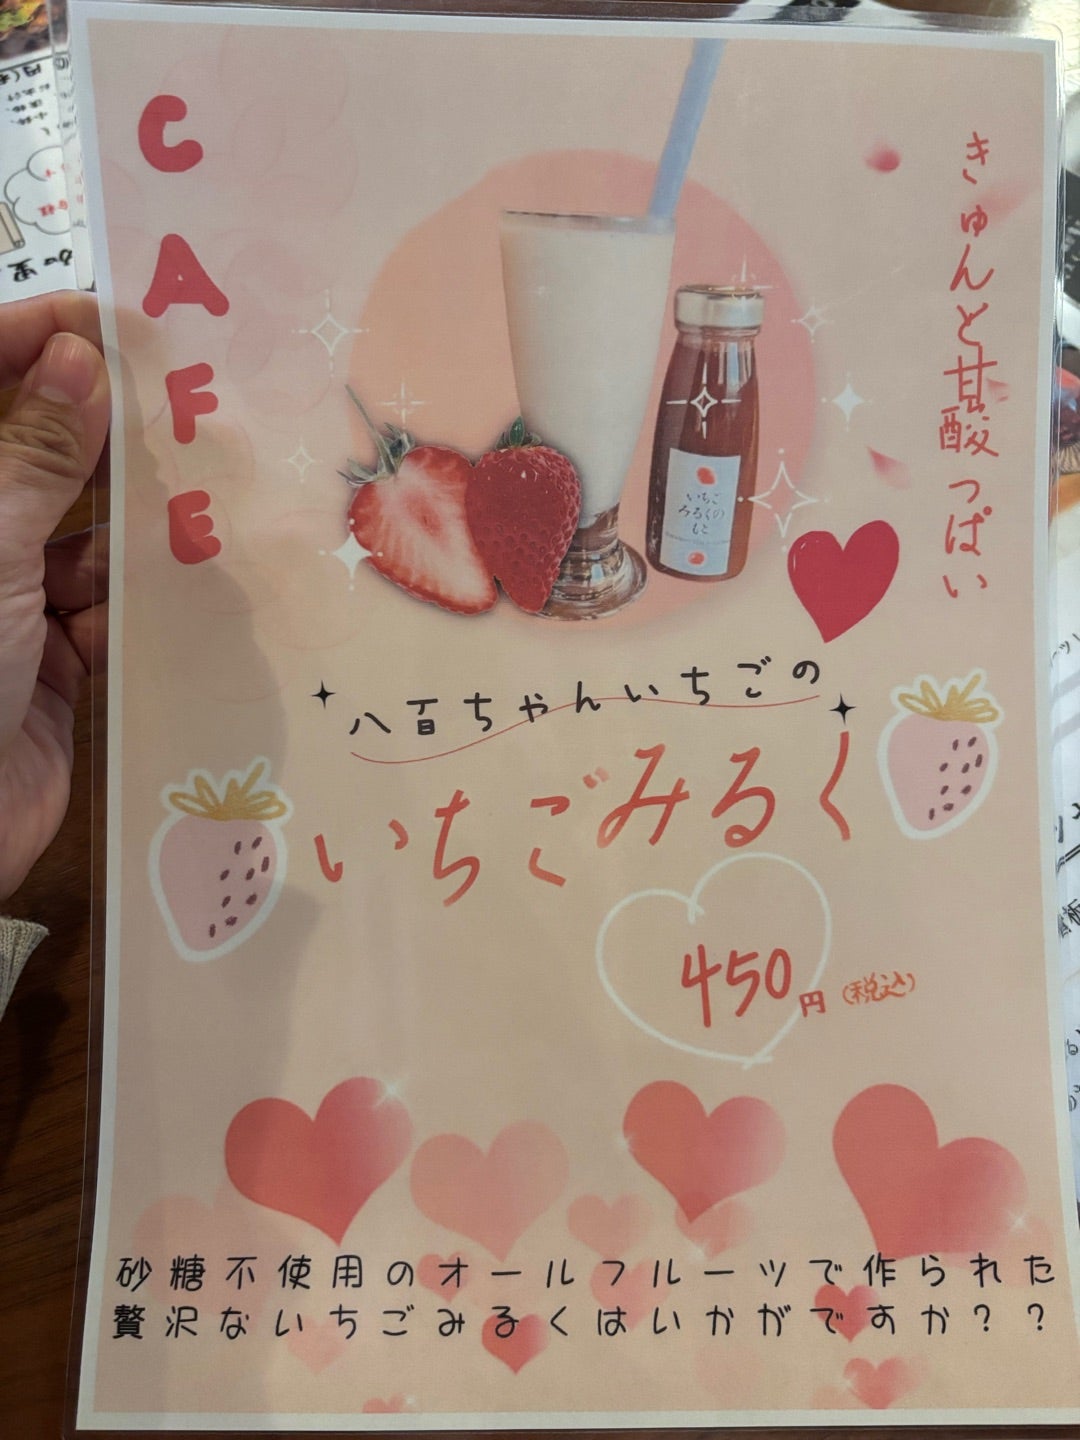 CAFE
きゅんと甘酸っぱい
いちご
みるくの
もと
八百ちゃんいちごの
いちごみるく
450円(税込)
砂糖不使用のオールフルーツで作られた
贅沢ないちごみるくはいかがですか??